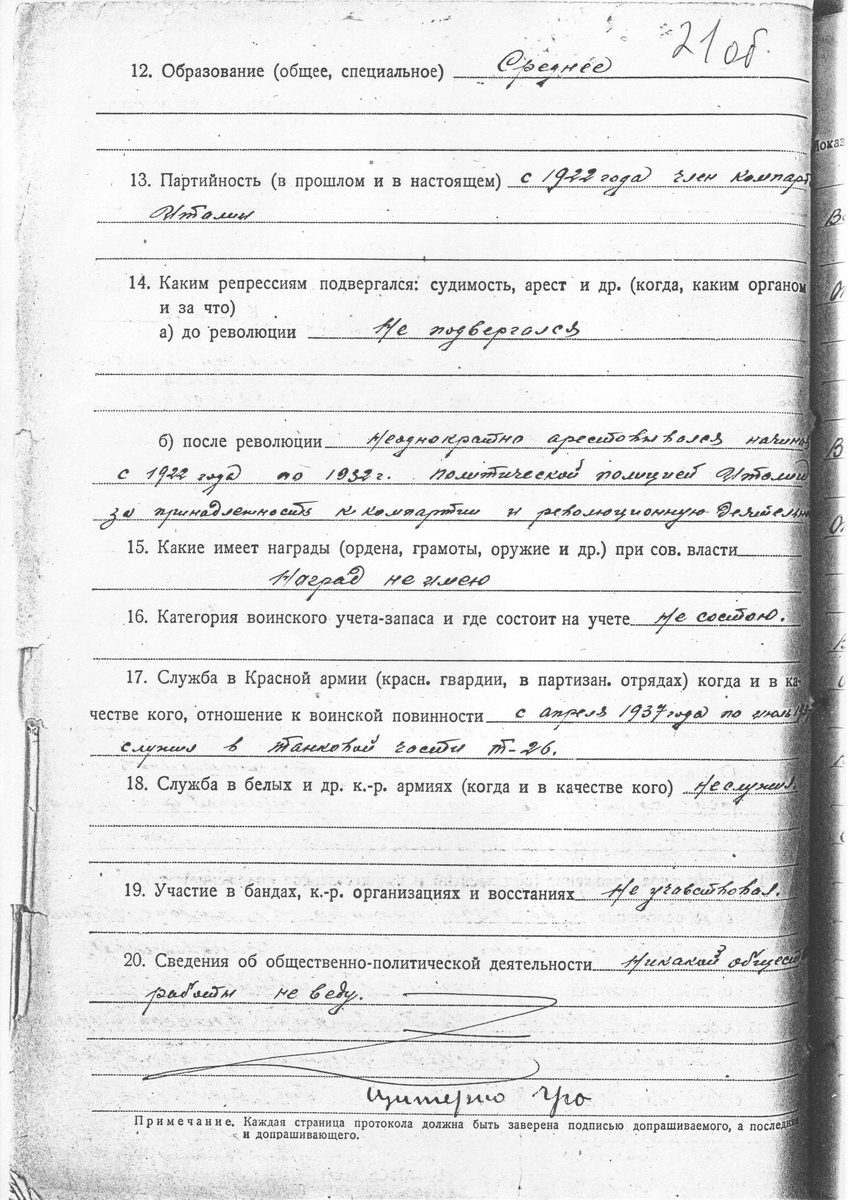 21 об.
12. Образование (общее, специальное) Среднее
13. Партийность (в прошлом и в настоящем) с 1922 года член компарт
Италии
14. Каким репрессиям подвергался: судимость, арест и др. (когда, каким органом
и за что)
а) до революции Не подвергался
б) после революции Неоднократно арестовывался начиная
с 1922 года по 1932 г. политической полицией Италии
за принадлежность к компартии и революционную деятельн
15. Какие имеет награды (ордена, грамоты, оружие и др.) при сов. власти
Наград не имею
16. Категория воинского учета-запаса и где состоит на учете Не состою.
17. Служба в Красной армии (красн. гвардии, в партизан. отрядах) когда и в ка-
честве кого, отношение к воинской повинности с апреля 1937 года по июль
служил в танковой части Т-26.
18. Служба в белых и др. к.-р. армиях (когда и в качестве кого) Не служил.
19. Участие в бандах, к.-р. организациях и восстаниях Не участвовал.
20. Сведения об общественно-политической деятельности Никакой обществ
работы не веду.
Читерио Уго
Примечание. Каждая страница протокола должна быть заверена подписью допрашиваемого, а последняя
и допрашивающего.
Показ